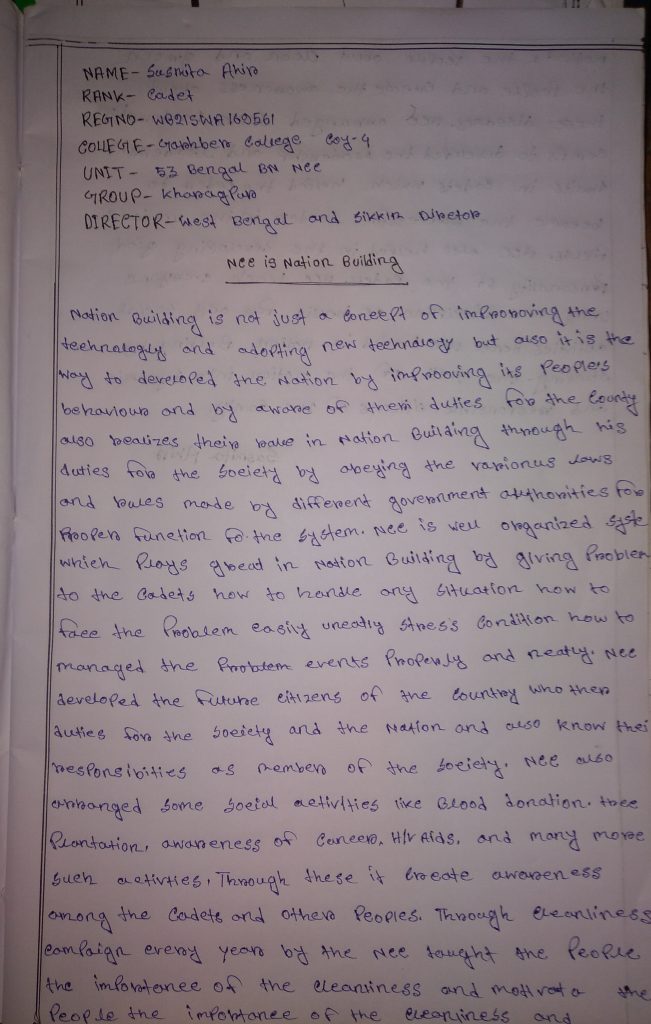 NAME- Susmita Ahir
RANK- Cadet
REGNO- WB21SWA160561
COLLEGE- Garhbeta College Coy-4
UNIT- 53 Bengal BN NCC
GROUP- Kharagpur
DIRECTOR- West Bengal and Sikkim Director
NCC is Nation Building
Nation Building is not just a concept of improving the
technology and adopting new technology but also it is the
way to developed the Nation by improoving its People's
behaviour and by aware of their duties for the County
also realizes their role in Nation Building through his
duties for the society by obeying the various laws
and rules made by different government authorities for
Proper function fo the system. NCC is well organized syste
which Plays great in Nation Building by giving Problem
to the Cadets how to handle any situation how to
face the Problem easily stress Condition how to
managed the Problem events Properly and neatly. NCC
developed the future citizens of the Country who ther
duties for the society and the Nation and also know thei
responsibities as member of the society. NCC also
arranged some social activities like Blood donation. tree
Plantation, awareness of Cancer, HIV Aids, and many more
such activties. Through these it create awareness
among the Cadets and other Peoples. Through cleanliness
campaign every year by the NCC taught the People
the importance of the cleanliness and the
People the importance of the cleanliness and